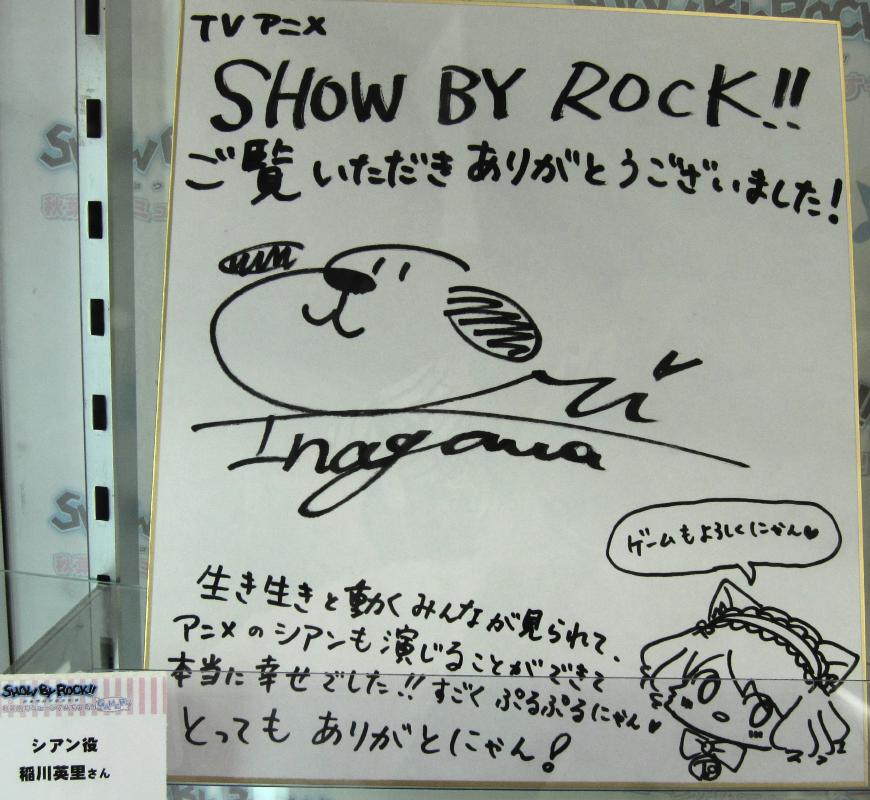 TVアニメ
SHOW BY ROCK!!
ご覧いただきありがとうございました!
Inagawa
ゲームもよろしくにゃん♥
生き生きと動くみんなが見られて、
アニメのシアンも演じることができて
本当に幸せでした!!すごくぷるぷるにゃん♥
とってもありがとにゃん!
SHOW BY ROCK!!
シアン役
稲川英里さん